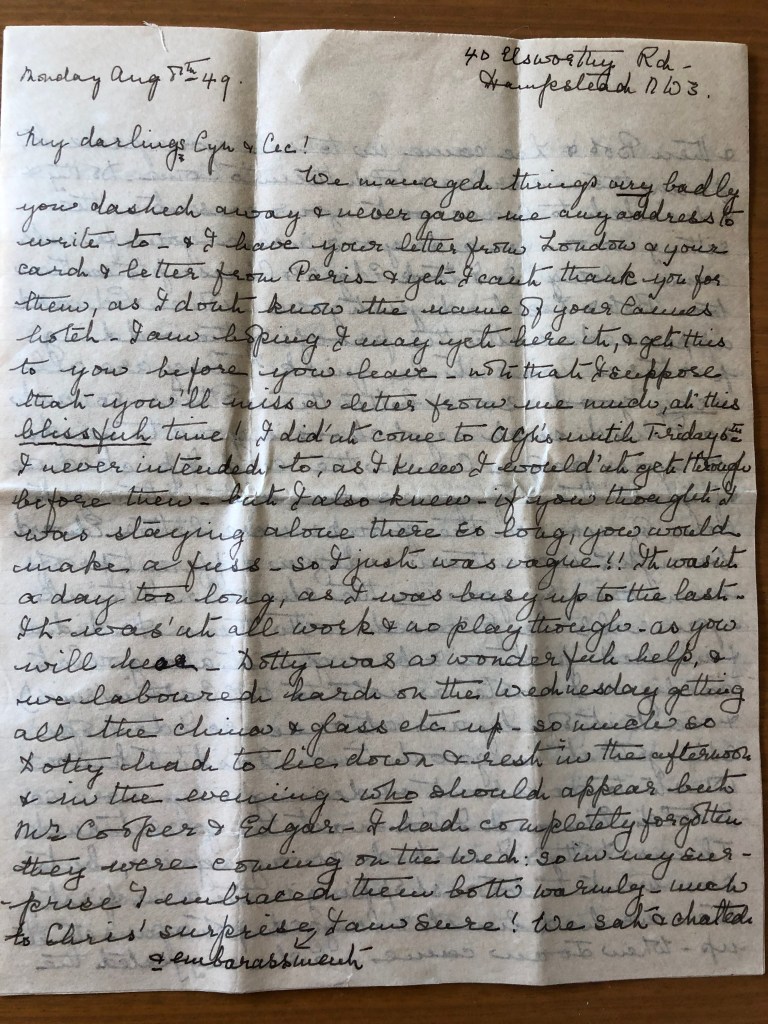 40 Elsworthy Rd -
Hampstead N W 3.
Monday Aug 8th 49.
My darlings Cyn & Cec!
We managed things very badly
you dashed away & never gave me any address to
write to - & I have your letter from London & your
card & letter from Paris - & yet I can't thank you for
them, as I dont know the name of your Cannes
hotel - I am hoping I may yet here it, & get this
to you before you leave - not that I suppose
that you'll miss a letter from me much, at this
blissful time! I did'nt come to Agk's until Friday 5th
I never intended to, as I knew I would'nt get through
before then - but I also knew - if you thought I
was staying alone there so long, you would
make a fuss - so I just was vague!! It was'nt
a day too long, as I was busy up to the last -
It was'nt all work & no play though - as you
will hear - Dotty was a wonderful help, &
we laboured hard on the Wednesday getting
all the china & glass etc up - so much so
Dotty had to lie down & rest in the afternoon
& in the evening - who should appear but
Mr Cooper & Edgar - I had completely forgotten
they were coming on the Wed: so in my sur-
-prise I embraced them both warmly - much
to Chris' surprise, I am sure! We sat & chatted
& embarassment